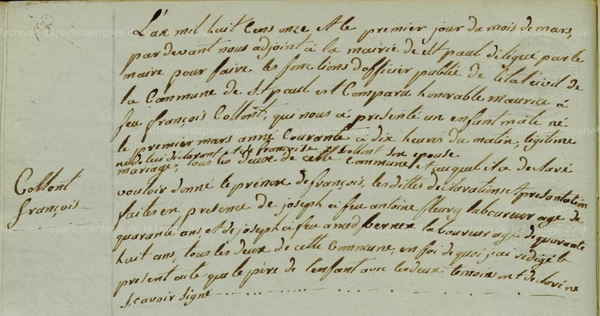 L'an mil huit cens onze et le premier jour du mois de mars,
pardevant nous adjoint à la mairie de st paul délégué par le
maire pour faire les fonctions d'officier publié de l'état civil de
la Commune de st paul est Comparu honorable maurice à
feu françois Collont, qui nous a présenté un enfant mâle né
le premier mars année Courante à dix heures du matin, légitime
né de lui déclarant et de françoise Collont son épouse
mariage, tous les deux de cette commune et auquel il a declaré
vouloir donné le prénom de françois, les dittes déclaration et presentation
faites en presence de joseph à feu antoine fleury laboureur age de
quarante ans et de joseph à feu amed laboureur agé de quarante
huit ans, tous les deux de cette Commune, en foi de quoi, j'ai rédigé le
présent acte que le père de l'enfant avec les deux temoins ont declaré ne
scavoir signé
Collont
françois